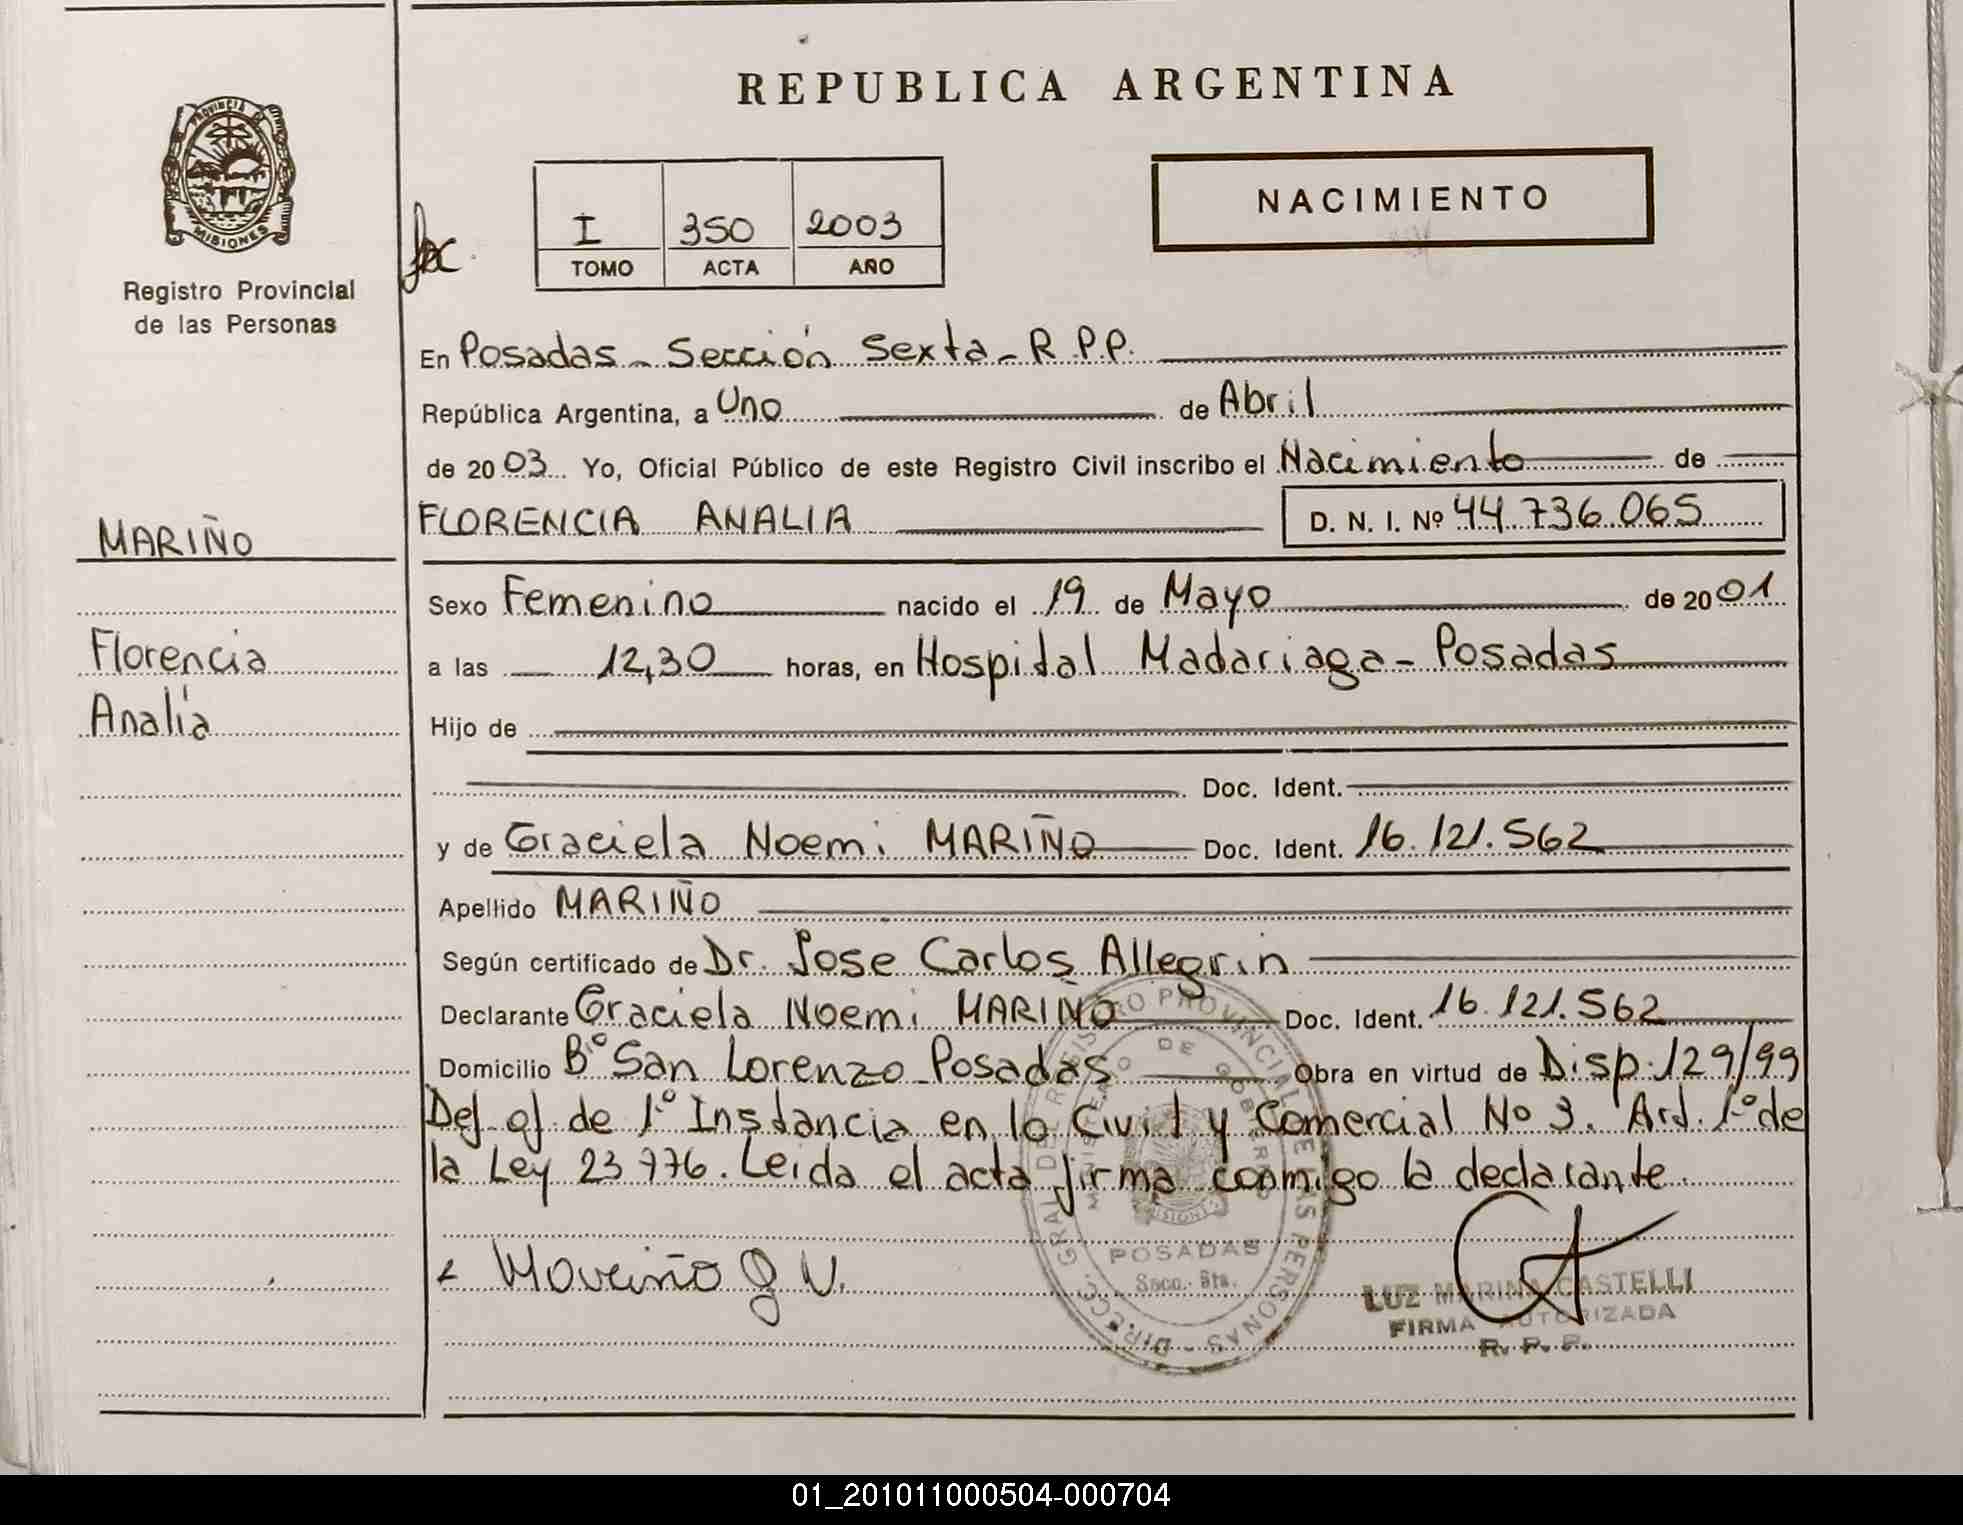 REPUBLICA ARGENTINA
PROVINCIA DE
MISIONES
Registro Provincial
de las Personas
I 350 2003
TOMO ACTA AÑO
NACIMIENTO
En Posadas - Sección Sexta - R.P.P.
República Argentina, a Uno de Abril
de 2003 Yo, Oficial Público de este Registro Civil inscribo el Nacimiento de
FLORENCIA ANALIA D. N. I. Nº 44.736.065
MARIÑO
Florencia
Analía
Sexo Femenino nacido el 19 de Mayo de 2001
a las 12,30 horas, en Hospital Madariaga - Posadas
Hijo de
Doc. Ident.
y de Graciela Noemi MARIÑO Doc. Ident. 16.121.562
Apellido MARIÑO
Según certificado de Dr. Jose Carlos Allegrin
Declarante Graciela Noemi MARIÑO Doc. Ident. 16.121.562
Domicilio Bº San Lorenzo Posadas Obra en virtud de Disp. 129/99
Def. of. de 1º Instancia en lo Civil y Comercial Nº 3. Art. 1º de
la Ley 23.776. Leida el acta firma conmigo la declarante.
DIRECC. GRAL. DE REGISTRO PROVINCIAL DE LAS PERSONAS
MINISTERIO DE GOBIERNO
MISIONES
POSADAS
Secc. 6ta.
Mariño G N.
LUZ MARINA CASTELLI
FIRMA AUTORIZADA
R. P. P.
01_201011000504-000704